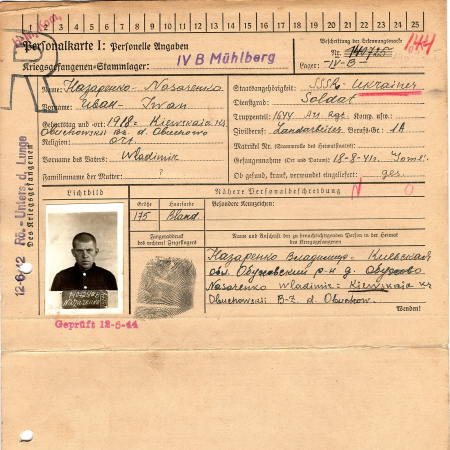 1 2 3 4 5 6 7 8 9 10 11 12 13 14 15 16 17 18 19 20 21 22 23 24 25
Personalkarte I: Personelle Angaben
Beschriftung der Erkennungsmarke
Kriegsgefangenen-Stammlager: IV B Mühlberg
Nr.
Lager: IV-B-
R
Name: Назаренко - Nasarenko
Vorname: Иван - Iwan
Geburtstag und -ort: 1918 - Kiewskaia
Obuchowski Bz. d. Obuchowo
Religion: ort.
Vorname des Vaters: Wladimir
Familienname der Mutter: ?
Staatsangehörigkeit: SSSR Ukrainer
Dienstgrad: Soldat
Truppenteil: 1644 Art. Rgt. Komp. usw.:
Zivilberuf: Landarbeiter Berufs-Gr.: 1A
Matrikel Nr. (Stammrolle des Heimatstaates):
Gefangennahme (Ort und Datum): 18-8-41
Ob gesund, krank, verwundet eingeliefert: ges.
Lichtbild
Nähere Personalbeschreibung
N 0
Größe Haarfarbe Besondere Kennzeichen:
175 Bland
Fingerabdruck
des rechten! Zeigefingers
Name und Anschrift der zu benachrichtigenden Person in der Heimat
des Kriegsgefangenen
Назаренко Владимир - Киевская
обл. Обуховский р-н д. Обухово
Nasarenko Wladimir - Kiewskaia
Obuchowski B-Z d. Obuchow.
Wenden!
Geprüft 12-6-44
12-6-42 Rö.- Unters. d. Lunge
Des Kriegsgefangenen